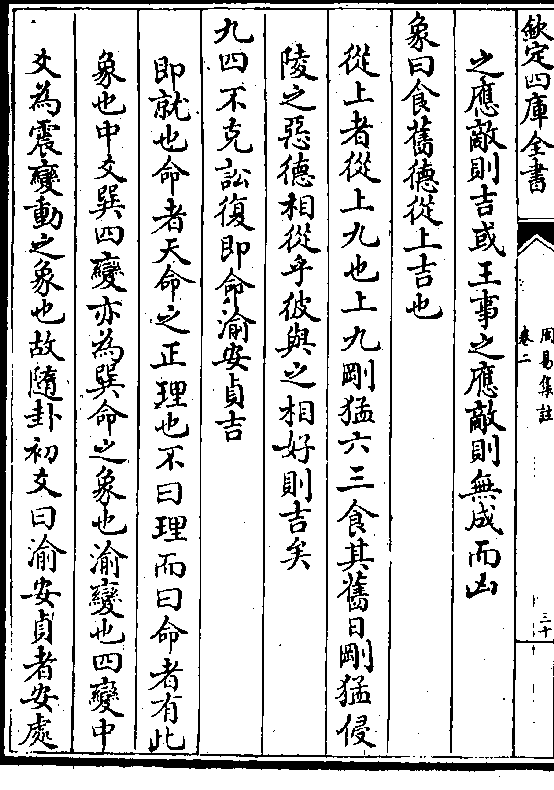 欽定四庫全書
周易集註
卷二
三十
之應敵則吉或王事之應敵則無成而凶
象曰食舊德從上吉也
從上者從上九也上九剛猛六三食其舊日剛猛侵
陵之惡德相從乎彼與之相好則吉矣
九四不克訟復即命渝安貞吉
即就也命者天命之正理也不曰理而曰命者有此
象也中爻巽四變亦為巽命之象也渝變也四變中
爻為震變動之象也故隨卦初爻曰渝安貞者安處